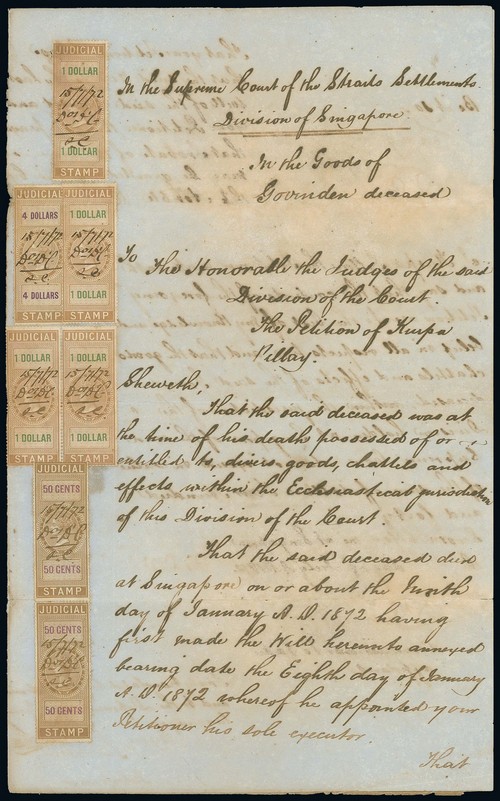 JUDICIAL
1 DOLLAR
15/7/72
1 DOLLAR
STAMP
JUDICIAL
4 DOLLARS
15/7/72
4 DOLLARS
STAMP
JUDICIAL
1 DOLLAR
15/7/72
1 DOLLAR
STAMP
JUDICIAL
1 DOLLAR
15/7/72
1 DOLLAR
STAMP
JUDICIAL
1 DOLLAR
15/7/72
1 DOLLAR
STAMP
JUDICIAL
50 CENTS
15/7/72
50 CENTS
STAMP
JUDICIAL
50 CENTS
15/7/72
50 CENTS
STAMP
In the Supreme Court of the Straits Settlements
Division of Singapore
In the Goods of
Govinden deceased
To
The Honorable the Judges of the said
Division of the Court.
The Petition of Kurpa
Pillay.
Sheweth;
That the said deceased was at
the time of his death possessed of or
entitled to, divers goods, chattels and
effects within the Ecclesiastical jurisdiction
of this Division of the Court.
That the said deceased died
at Singapore on or about the Ninth
day of January A.D. 1872 having
first made the Will hereunto annexed
bearing date the Eighth day of January
A.D. 1872 whereof he appointed your
Petitioner his sole executor.
That